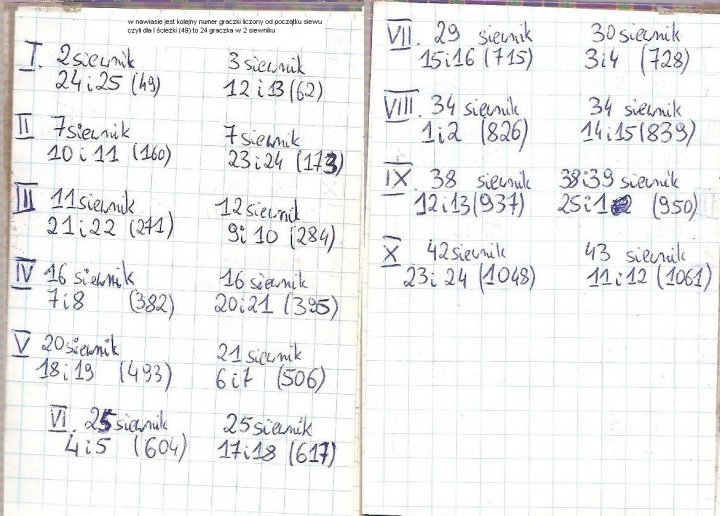 w nawiasie jest kolejny numer graczki liczony od początku siewu
czyli dla I ścieżki (49) to 24 graczka w 2 siewniku
I. 2 siewnik 3 siewnik
24 i 25 (49) 12 i 13 (62)
II 7 siewnik 7 siewnik
10 i 11 (160) 23 i 24 (173)
III 11 siewnik 12 siewnik
21 i 22 (271) 9 i 10 (284)
IV 16 siewnik 16 siewnik
7 i 8 (382) 20 i 21 (395)
V 20 siewnik 21 siewnik
18 i 19 (493) 6 i 7 (506)
VI. 25 siewnik 25 siewnik
4 i 5 (604) 17 i 18 (617)
VII. 29 siewnik 30 siewnik
15 i 16 (715) 3 i 4 (728)
VIII. 34 siewnik 34 siewnik
1 i 2 (826) 14 i 15 (839)
IX. 38 siewnik 38 i 39 siewnik
12 i 13 (937) 25 i 1 (950)
X 42 siewnik 43 siewnik
23 i 24 (1048) 11 i 12 (1061)